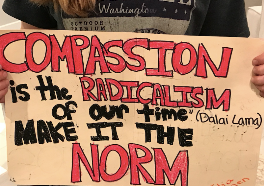 OUTDOOR
Washington
COMPASSION
is the RADICALISM
of our time" (Dalai Lama)
MAKE IT THE
NORM